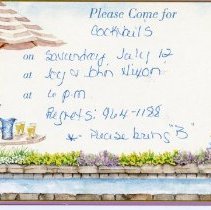 Please Come for
Cocktails
on Saturday, July 12
at Joy & John Nixon
at 6 p.m.
Regrets: 964-1188
* Please bring "B"